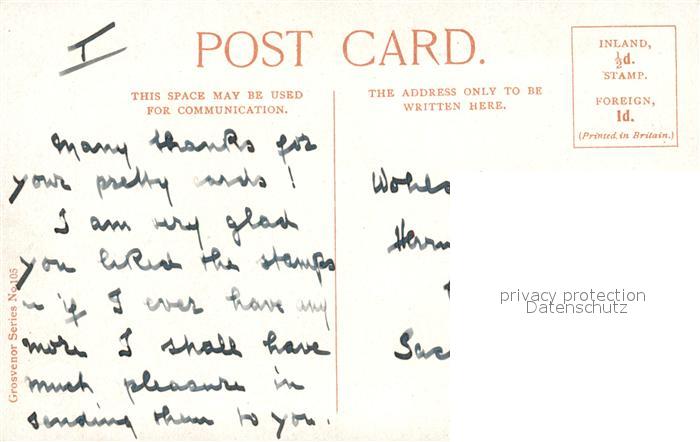 I
POST CARD.
THIS SPACE MAY BE USED
FOR COMMUNICATION.
THE ADDRESS ONLY TO BE
WRITTEN HERE.
INLAND,
½d.
STAMP.
FOREIGN,
1d.
(Printed in Britain.)
Many thanks for
your pretty cards!
I am very glad
you liked the stamps
& if I ever have any
more I shall have
much pleasure in
sending them to you.
Grosvenor Series No 105
Herrn
privacy protection
Datenschutz